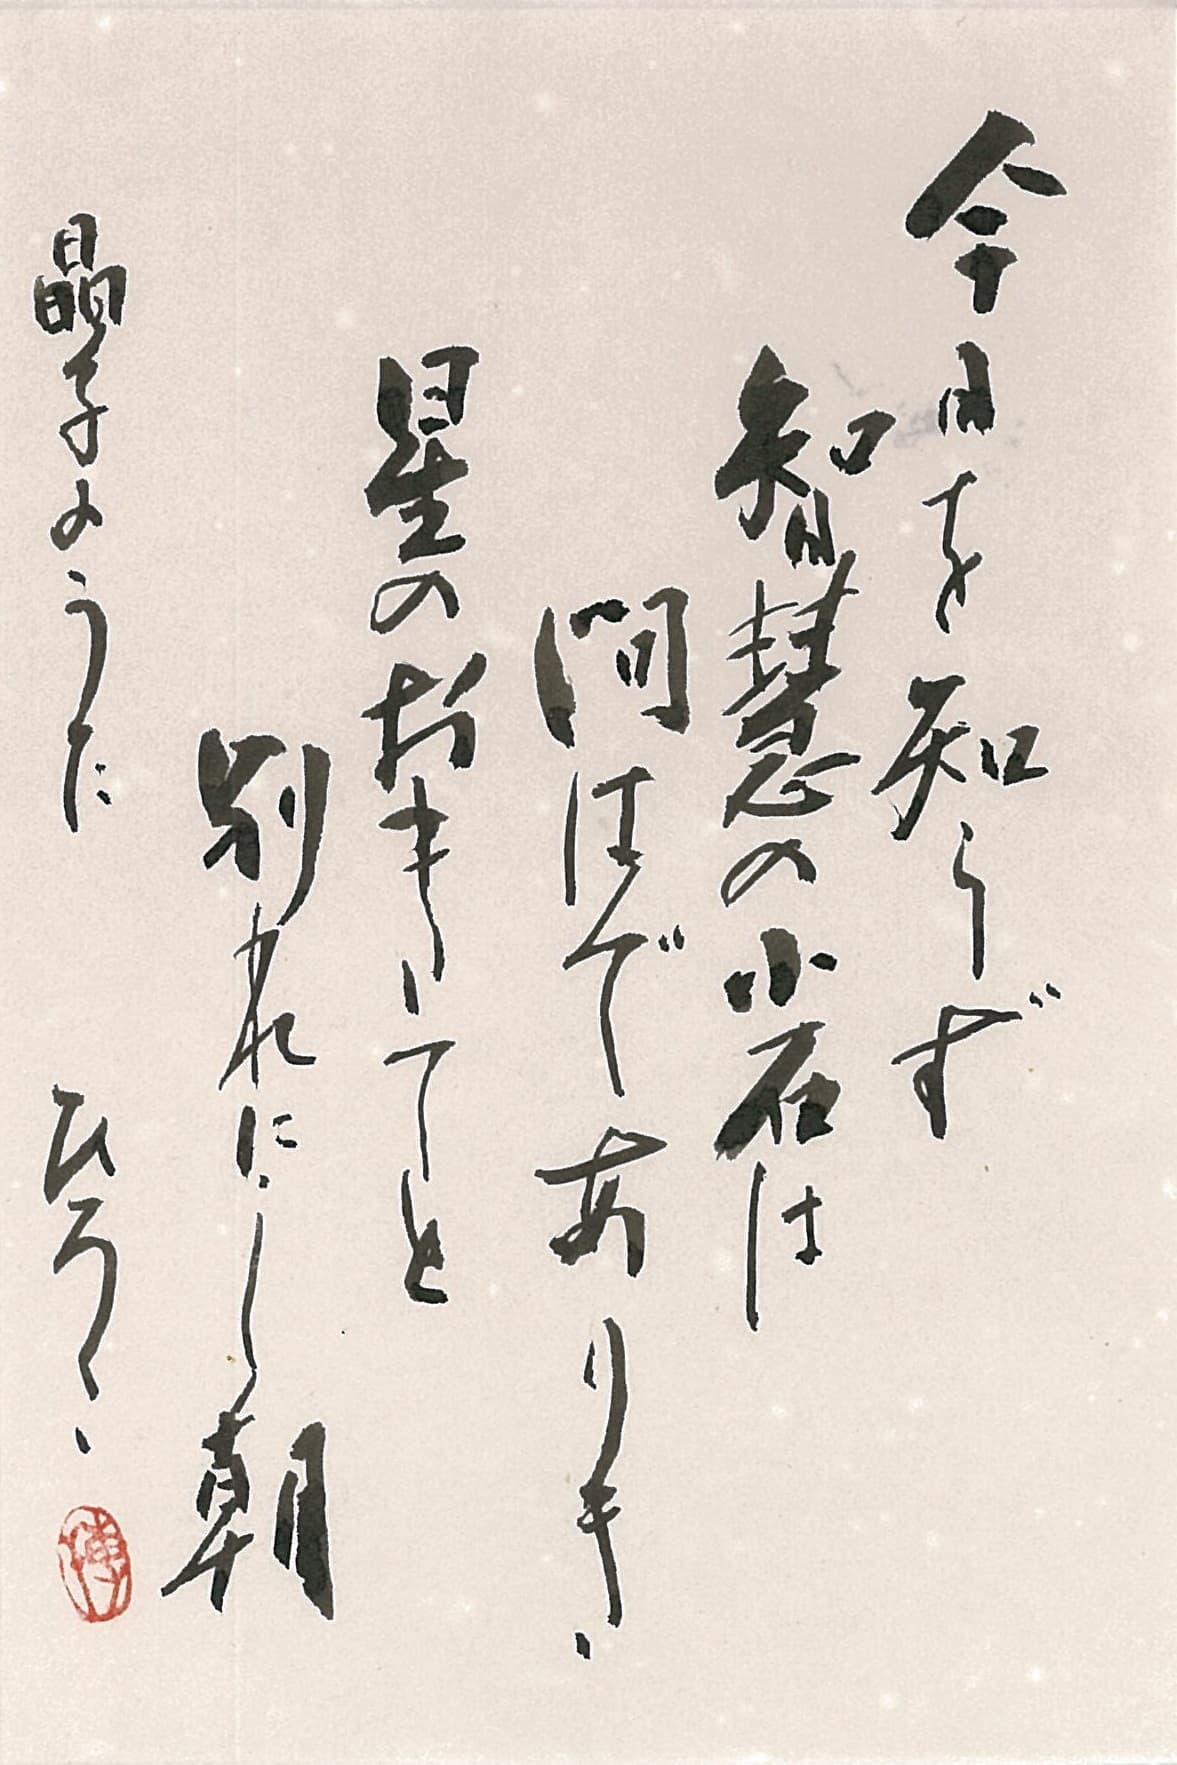 今日を知らず
智慧の小石は
問はでありき
星のおきてと
別れにし朝
晶子のうた
ひろ